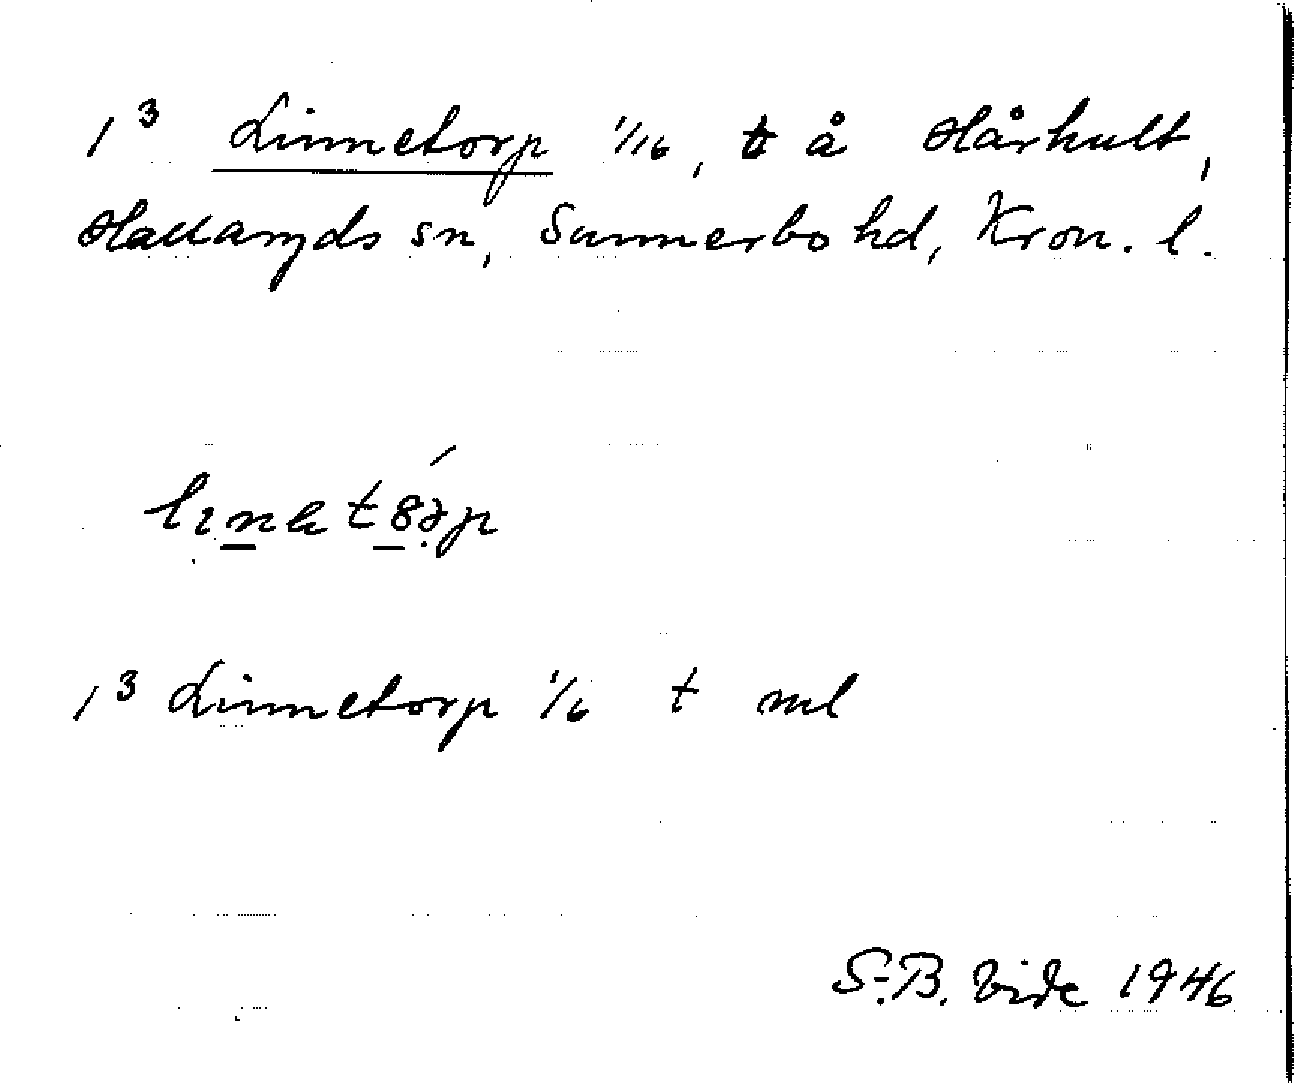 1³ Linnetorp 1/16, t å Hårhult,
Hallaryds sn, Sunnerbo hd, Kron. l.
1³ Linnetorp 1/6 t ml
S.-B. Vide 1946